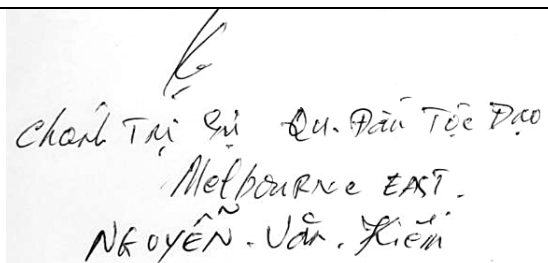 Ký
Chánh Trị Sự Qu. Đầu Tộc Đạo
Melbourne EAST.
NGUYỄN. Văn. Kiếm